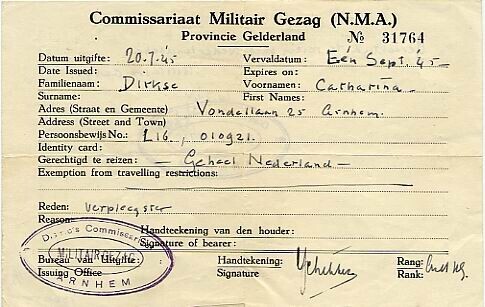 Commissariaat Militair Gezag (N.M.A.)
Provincie Gelderland
№ 31764
Datum uitgifte: 20.7.45 Vervaldatum: Eén Sept. 45
Date Issued: Expires on:
Familienaam: Dirkse Voornamen: Catharina
Surname: First Names:
Adres (Straat en Gemeente) Vondellaan 25 Arnhem.
Address (Street and Town)
Persoonsbewijs No.: L16, 010921.
Identity card:
Gerechtigd te reizen: — Geheel Nederland —
Exemption from travelling restrictions:
Reden: verpleegster
Reason:
Handteekening van den houder:
Signature of bearer:
Bureau van Uitgifte: Handtekening: Rang:
Issuing Office Signature Rank:
Commissaris
MILITAIR GEZAG
ARNHEM